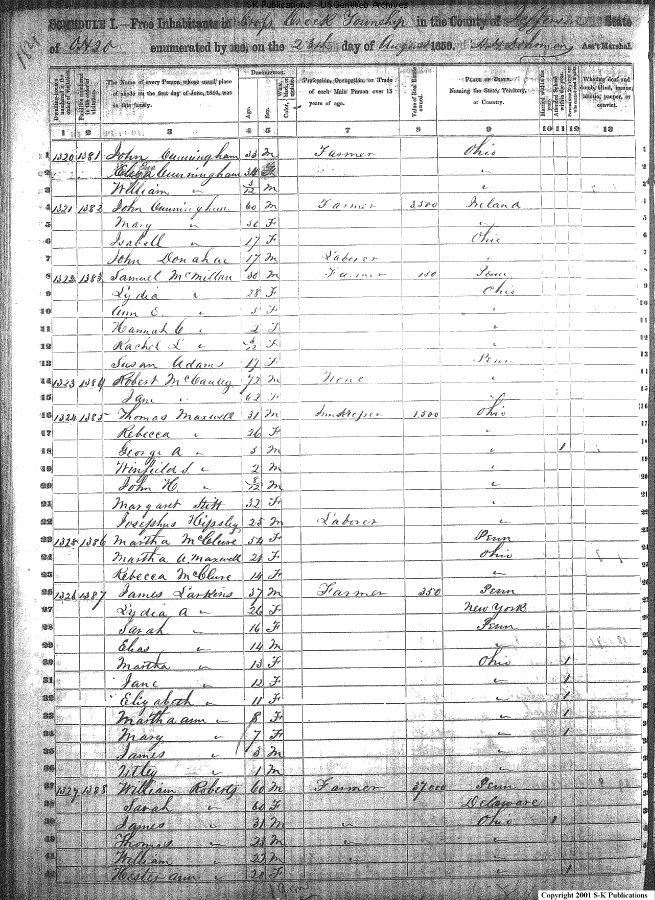 S-K Publications - US GenWeb Archives
SCHEDULE I.—Free Inhabitants in Cross Creek Township in the County of Jefferson State
of OHIO enumerated by me, on the 21st day of August 1850. Ass't Marshal.
The Name of every Person whose usual place of abode on the first day of June, 1850, was in this family.
Description.
Age. Sex.
Profession, Occupation, or Trade of each Male Person over 15 years of age.
Value of Real Estate owned.
Place of Birth. Naming the State, Territory, or Country.
1 2 3 4 5 6 7 8 9 10 11 12 13
1 1320 1381 John Cunningham 33 M Farmer Ohio
2 Cunningham 30 F "
3 William " M "
4 1321 1382 John Cunningham 60 M Farmer 3500 Ireland
5 Mary " 50 F "
6 Isabell " 17 F Ohio
7 John Donahue 17 M Laborer "
8 1322 1383 Samuel McMillan 30 M Farmer 150 Penn
9 Lydia " 28 F Ohio
10 Ann E " 5 F "
11 Hannah C " 2 F "
12 Rachel L " F "
13 Susan Adams 17 F Penn
14 1323 1384 Robert McCauley 72 M None "
15 Jane " 62 F "
16 1324 1385 Thomas Maxwell 31 M Innkeeper 1500 Ohio
17 Rebecca " 26 F "
18 George A " 5 M " 1
19 Winfield S " 2 M "
20 John H. " M "
21 Margaret Stitt 32 F "
22 Josephus Hipsley 25 M Laborer "
23 1325 1386 Martha McClure 54 F Penn
24 Martha A Maxwell 21 F Ohio
25 Rebecca McClure 14 F "
26 1326 1387 James Larkins 37 M Farmer 350 Penn
27 Lydia A " 26 F New York
28 Sarah " 16 F Penn
29 Elias " 14 M "
30 Martha " 13 F Ohio 1
31 Jane " 12 F " 1
32 Elizabeth " 11 F " 1
33 Martha ann " 8 F " 1
34 Mary " 7 F " 1
35 James " 3 M "
36 " 1 M "
37 1327 1388 William Roberts 60 M Farmer 37000 Penn
38 Sarah " 60 F Delaware
39 James " 31 M " Ohio
40 Thomas " 23 M " "
41 William " 22 M " "
42 Hester ann " 20 F " 1
Copyright 2001 S-K Publications